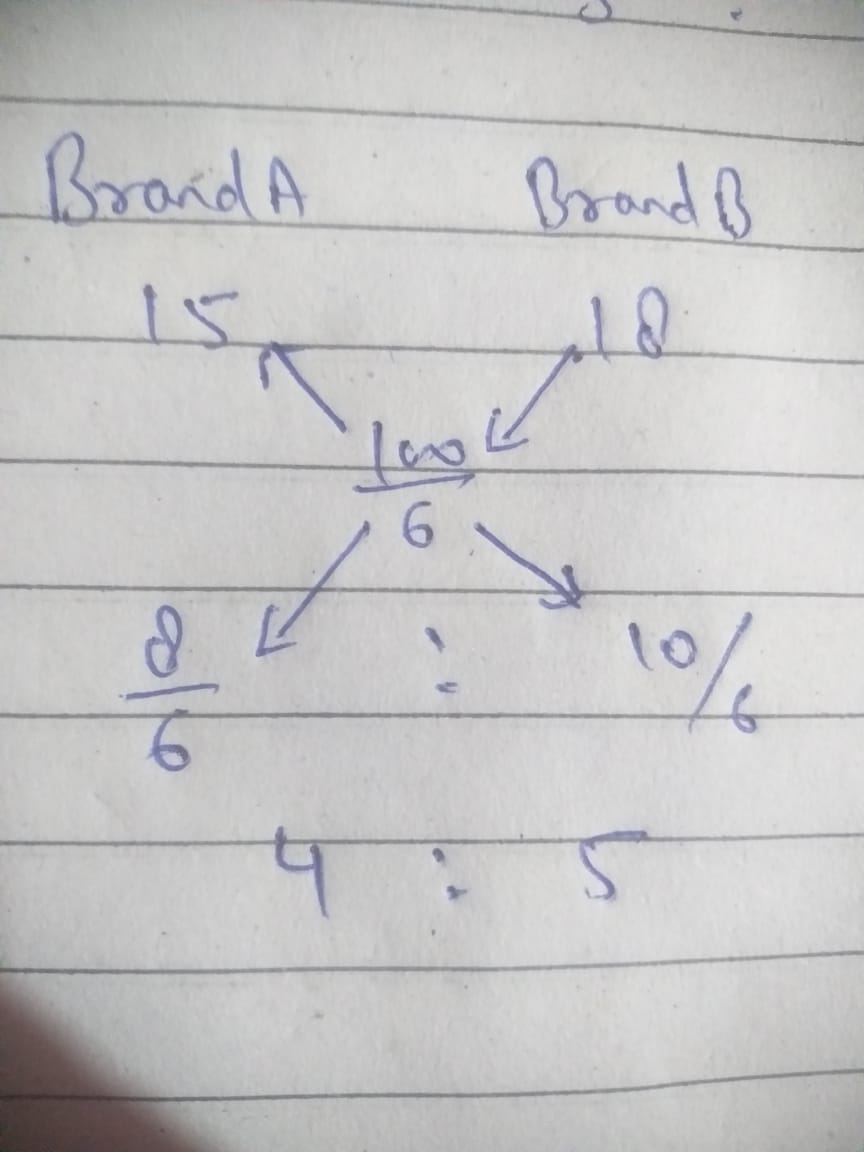 Brand A Brand B
15 18
100
6
8
6
: 10/6
4 : 5